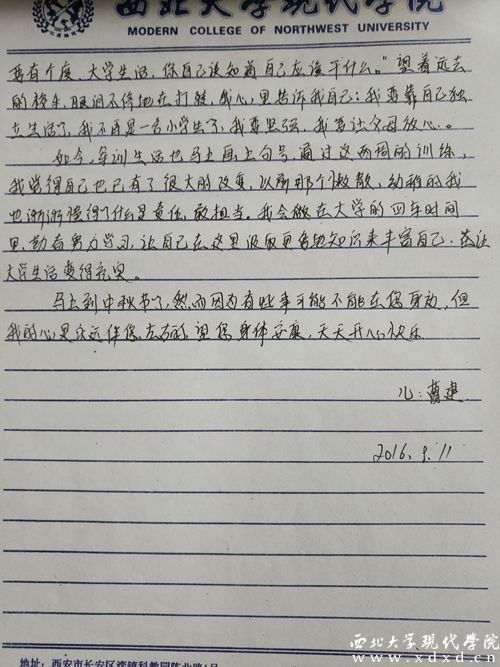 西北大学现代学院
MODERN COLLEGE OF NORTHWEST UNIVERSITY
要有个度，大学生活，你自己该知道自己应该干什么。"望着远去
的轿车，眼泪不停地在打转，我心里告诉我自己：我要靠自己独
立生活了，我不再是一名小学生了，我要坚强，我要让父母放心。
如今，军训生活也马上画上句号，通过这两周的训练，
我觉得自己也已有了很大的改变，以前那个傲散、幼稚的我
也渐渐懂得了什么是责任，敢担当。我会做在大学的四年时间
里，勤奋努力学习，让自己在这里汲取更多的知识来丰富自己，
大学生活变得充实。
马上到中秋节了，然而因为有些事可能不能在您身边，但
我的心是永远伴您左右的，望您身体安康，天天开心快乐
儿：曹建
2016.9.11
地址：西安市长安区滦镇科教园陈北路1号
西北大学现代学院
www.xdxd.cn